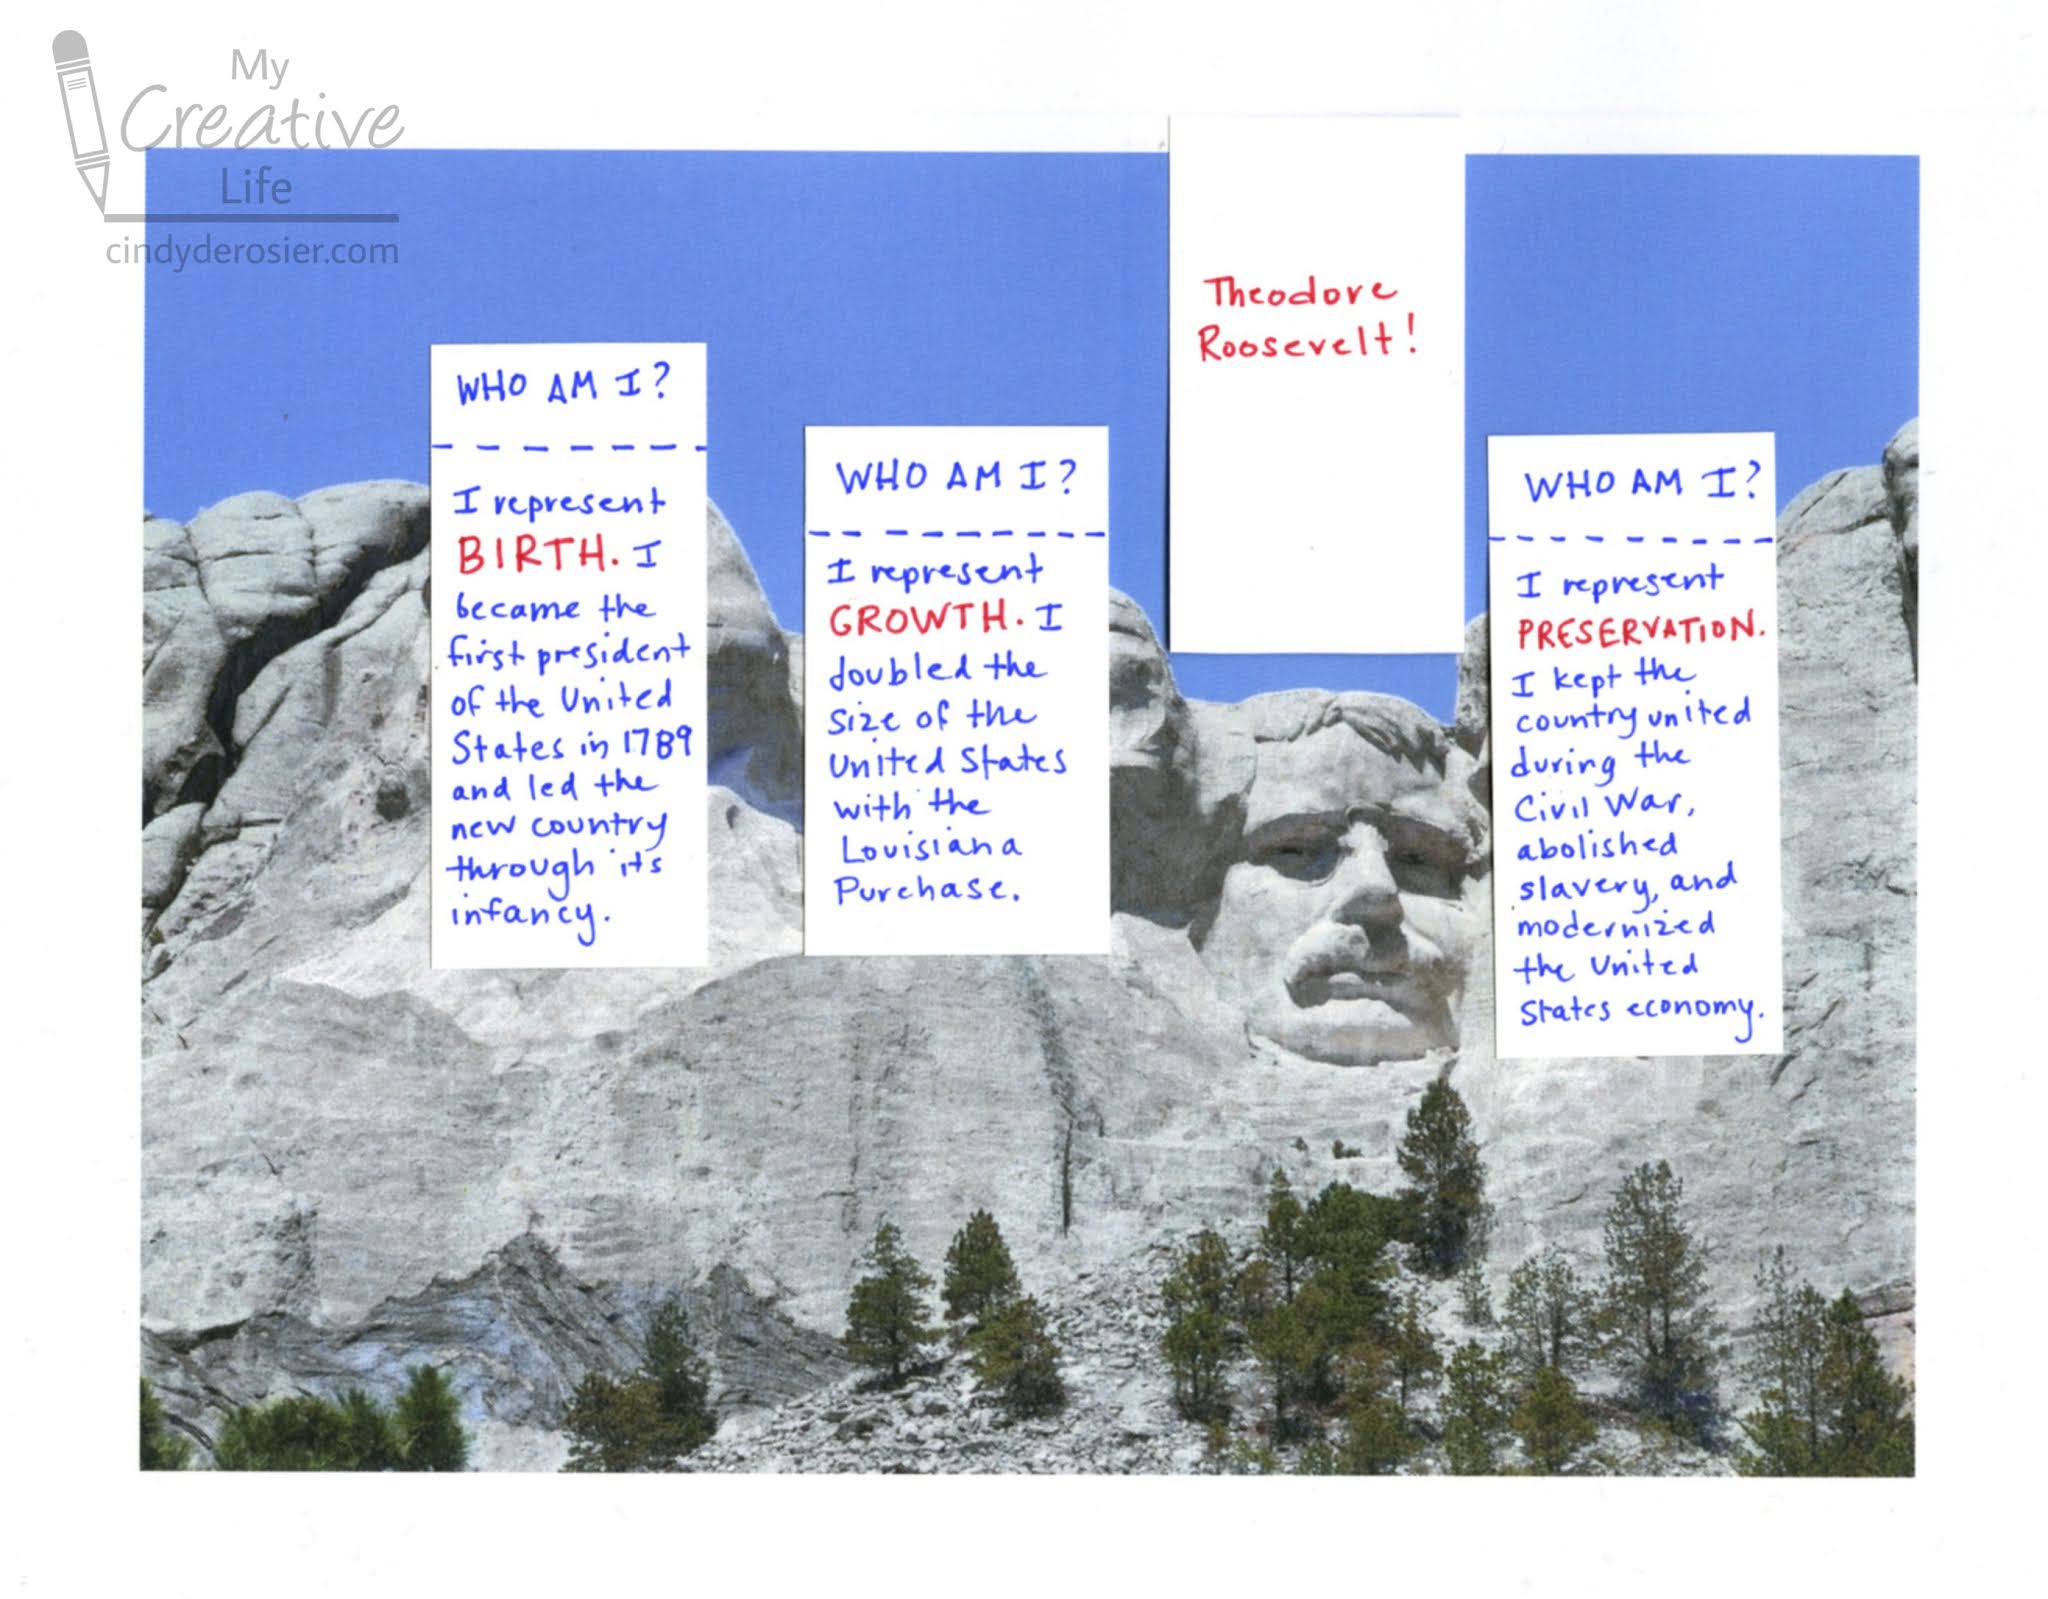 My
Creative
Life
cindyderosier.com
WHO AM I?
I represent
BIRTH. I
became the
first president
of the United
States in 1789
and led the
new country
through its
infancy.
WHO AM I?
I represent
GROWTH. I
doubled the
size of the
United States
with the
Louisiana
Purchase.
Theodore
Roosevelt!
WHO AM I?
I represent
PRESERVATION.
I kept the
country united
during the
Civil War,
abolished
slavery, and
modernized
the United
States economy.